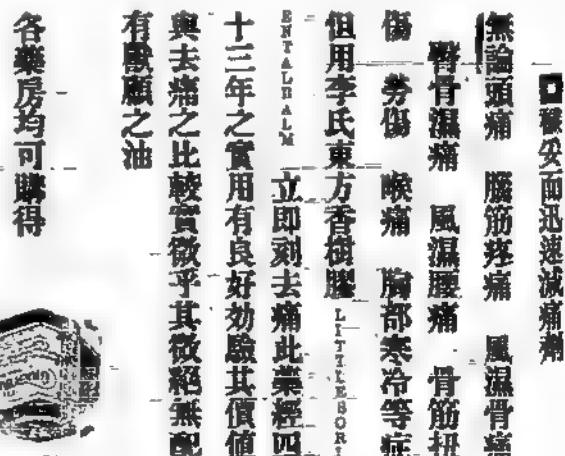 穩妥而迅速減痛劑
無論頭痛 腦筋疼痛 風濕骨痛
臀骨濕痛 風濕腰痛 骨筋扭
傷 勞傷 喉痛 胸部寒冷等症
但用李氏東方香樹膠 LITTLE'S ORI
ENTAL BALM 立即刻去痛此藥經四
十三年之實用有良好効驗其價值
與去痛之比較實微乎其微絕無配
有獸願之油
各藥房均可購得